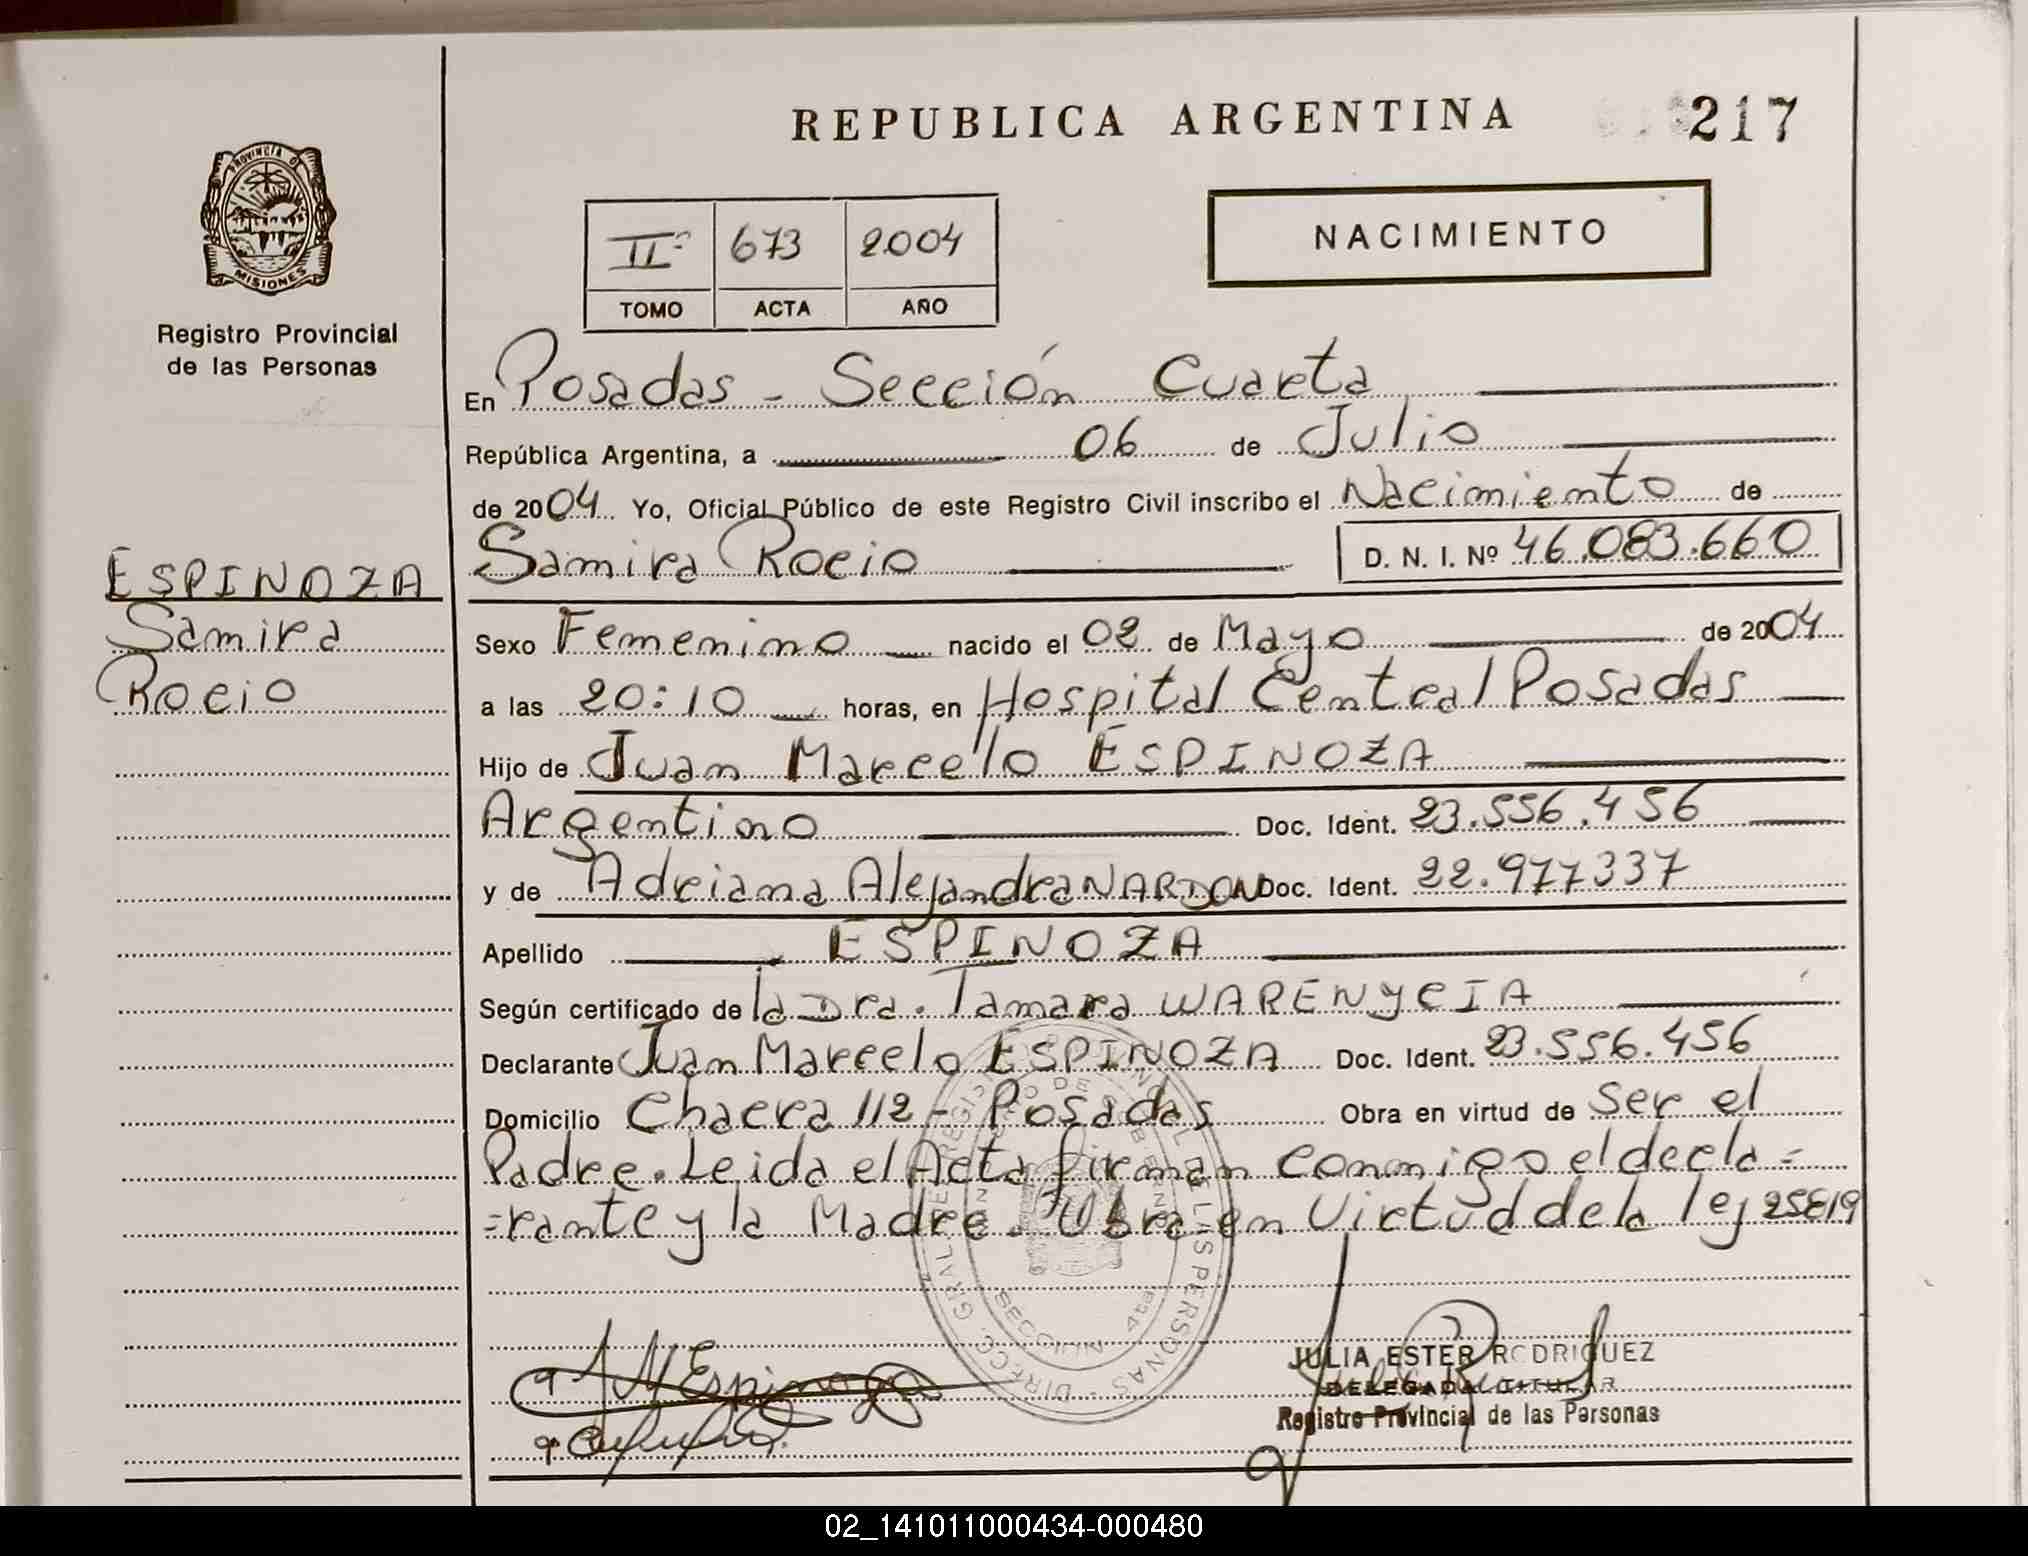 REPUBLICA ARGENTINA
217
PROVINCIA DE
MISIONES
Registro Provincial
de las Personas
IIº 673 2004
TOMO ACTA AÑO
NACIMIENTO
En Posadas - Sección Cuarta
República Argentina, a 06 de Julio
de 2004 Yo, Oficial Público de este Registro Civil inscribo el Nacimiento de
Samira Rocio D. N. I. Nº 46.083.660
ESPINOZA
Samira
Rocio
Sexo Femenino nacido el 02 de Mayo de 2004
a las 20:10 horas, en Hospital Central Posadas
Hijo de Juan Marcelo ESPINOZA
Argentino Doc. Ident. 23.556.456
y de Adriana Alejandra NARDON Doc. Ident. 22.977337
Apellido ESPINOZA
Según certificado de la Dra. Tamara WARENYCIA
Declarante Juan Marcelo ESPINOZA Doc. Ident. 23.556.456
Domicilio Chacra 112 - Posadas Obra en virtud de ser el
Padre. Leida el Acta firman conmigo el decla=
=rante y la Madre. Obra en Virtud de la ley 25819
DIRECC. GRAL. DE REGISTRO PROVINCIAL DE LAS PERSONAS
SECCION 4ta
JMEspinoza
JULIA ESTER RODRIGUEZ
DELEGADA TITULAR
Registro Provincial de las Personas
02_141011000434-000480